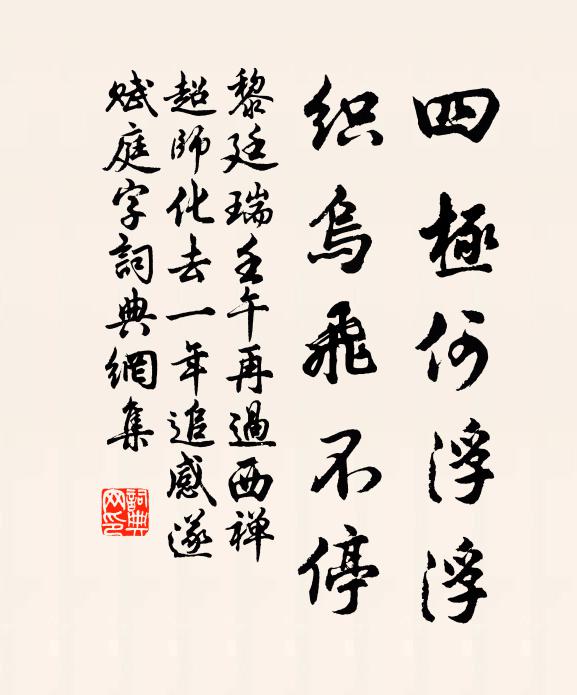 四極何浮浮
織烏飛不停
黎廷瑞壬午再過西禅
超師化去一年追感遂
賦庭字詞典網集
詞典网印